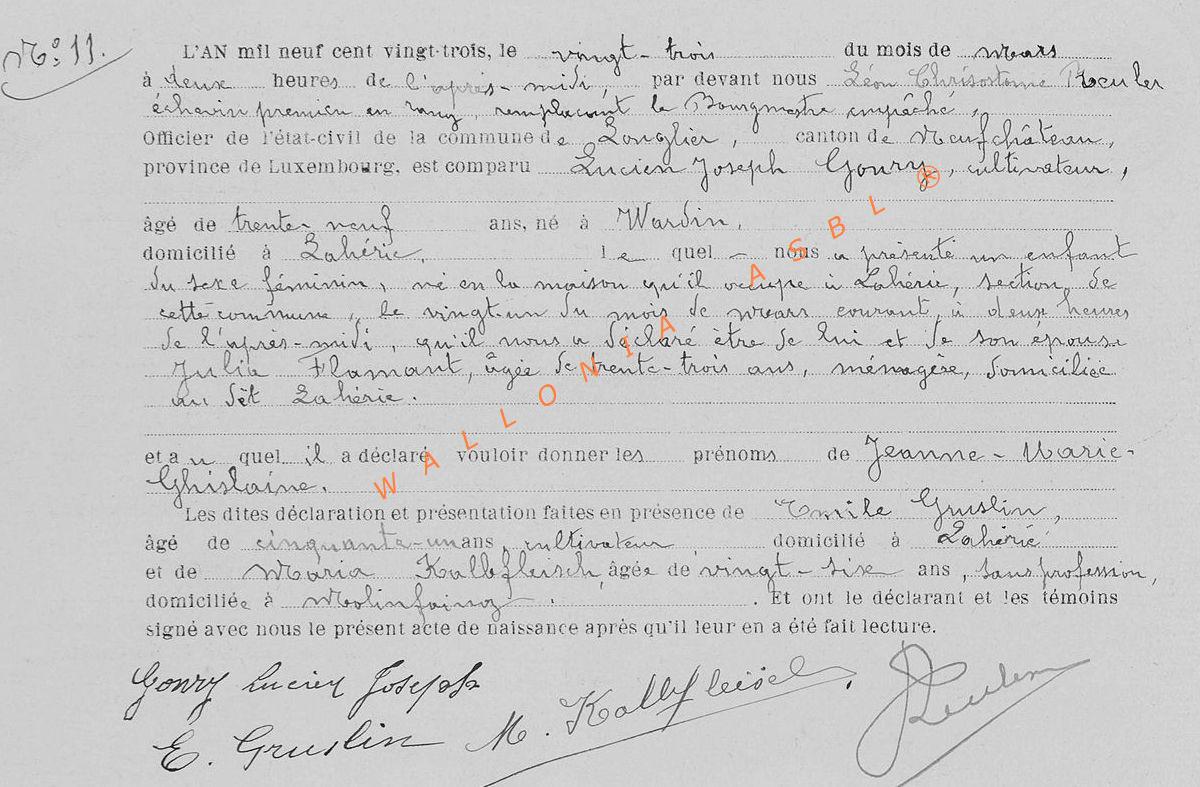 N° 11.
L'AN mil neuf cent vingt-trois, le vingt-trois du mois de mars
à deux heures de l'après-midi, par devant nous Léon Chrisostome
échevin premier en rang, remplaçant le Bourgmestre empêché,
Officier de l'état-civil de la commune de Longlier, canton de Neufchâteau,
province de Luxembourg, est comparu Lucien Joseph Goury, cultivateur,
âgé de trente-neuf ans, né à Wardin,
domicilié à Lahérie, le quel – nous a présenté un enfant
du sexe féminin, né en la maison qu'il occupe à Lahérie, section de
cette commune, le vingt-un du mois de mars courant, à deux heures
de l'après-midi, qu'il nous a déclaré être de lui et de son épouse
Julia Flamant, âgée de trente-trois ans, ménagère, domiciliée
au dit Lahérie.
et au quel il a déclaré vouloir donner les prénoms de Jeanne-Marie-
Ghislaine.
Les dites déclaration et présentation faites en présence de Emile Gruslin,
âgé de cinquante-un ans, cultivateur domicilié à Lahérie
et de Maria Kalbfleisch, âgée de vingt-six ans, sans profession,
domiciliée à Molinfaing. Et ont le déclarant et les témoins
signé avec nous le présent acte de naissance après qu'il leur en a été fait lecture.
Goury Lucien Joseph
E. Gruslin M. Kalbfleisch
WALLONIA ASBL ®